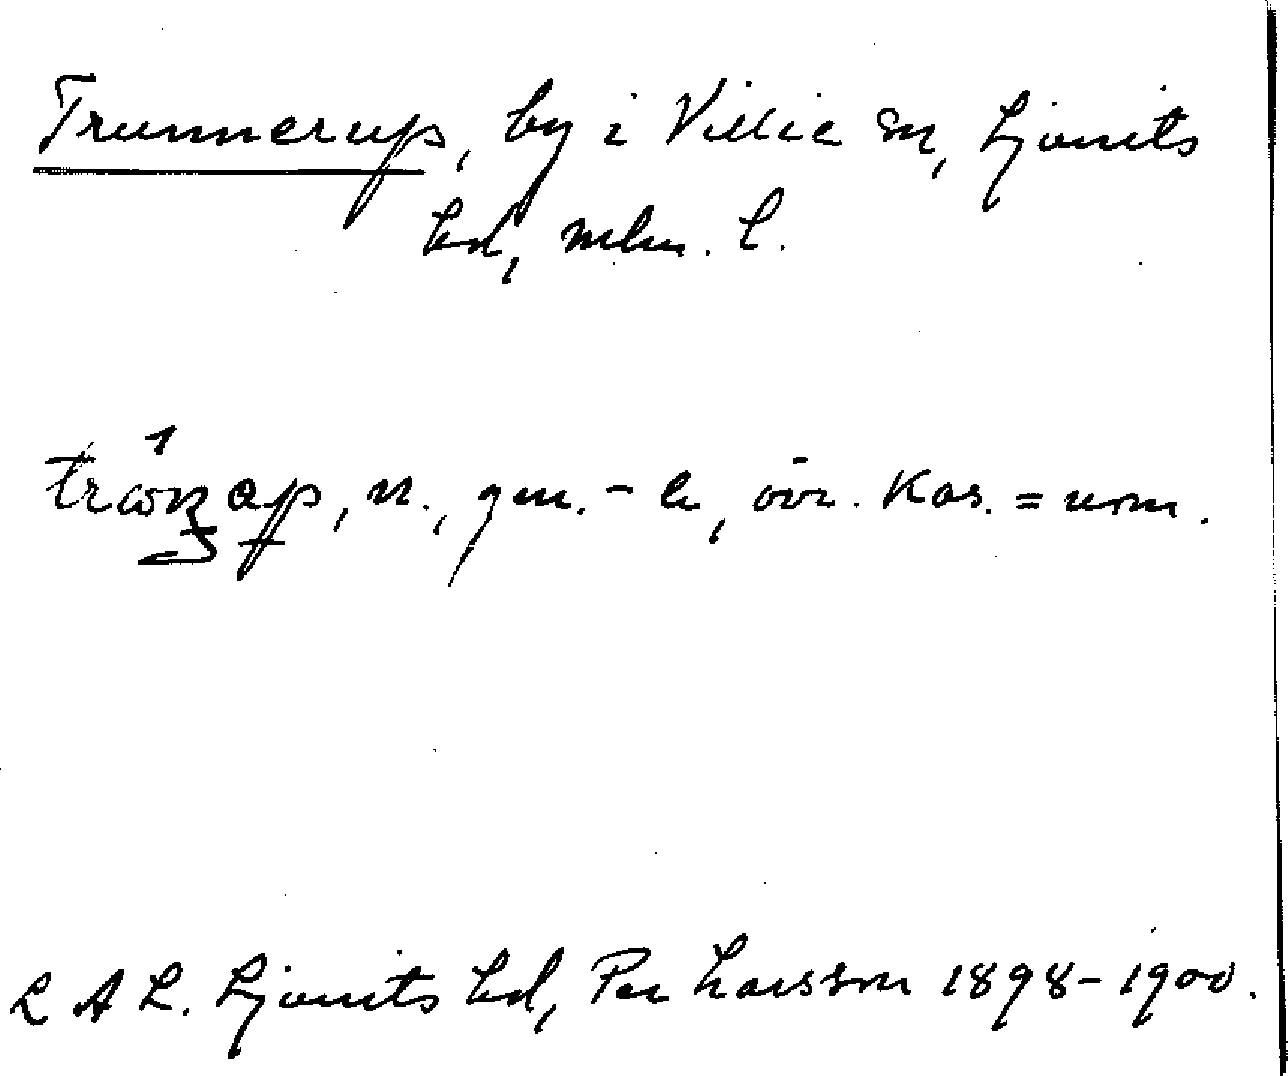 Trunnerup, by i Villie sn, Ljunits
hd, mlm. l.
n., gen. - a, övr. kas. = nom.
L A L. Ljunits hd, Per Larsson 1898-1900.